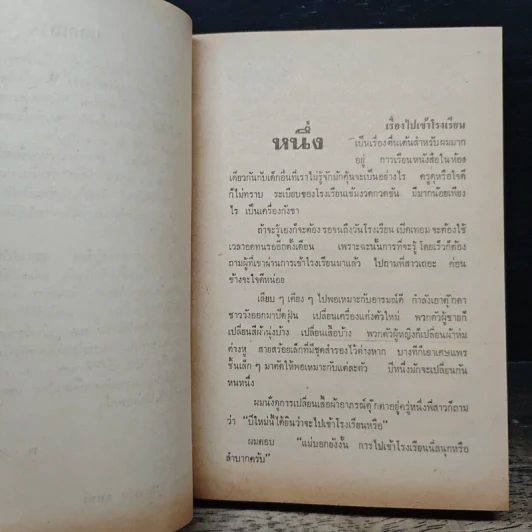 หนึ่ง
เรื่องไปเข้าโรงเรียน
เป็นเรื่องตื่นเต้นสำหรับผมมาก
อยู่ การเรียนหนังสือในห้อง
เดียวกันกับเด็กอื่นที่เราไม่รู้จักมักคุ้นจะเป็นอย่างไร ครูดุหรือใจดี
ก็ไม่ทราบ ระเบียบของโรงเรียนเข้มงวดกวดขัน มีมากน้อยเพียง
ไร เป็นเครื่องกังขา
ถ้าจะรู้เองก็จะต้องรอจนถึงวันโรงเรียนเปิดเทอม จะต้องใช้
เวลาอดทนรออีกตั้งเดือน เพราะฉะนั้นการที่จะรู้โดยเร็วก็ต้อง
ถามผู้ที่เขาผ่านการเข้าโรงเรียนมาแล้ว ไปถามพี่สาวเถอะ ค่อน
ข้างจะใจดีหน่อย
เลียบ ๆ เคียง ๆ ไปพอเหมาะกับอารมณ์ดี กำลังเอาตุ๊กตา
ชาววังออกมาปัดฝุ่น เปลี่ยนเครื่องแต่งตัวใหม่ พวกตัวผู้ชายก็
เปลี่ยนสีผ้านุ่งบ้าง เปลี่ยนเสื้อบ้าง พวกตัวผู้หญิงก็เปลี่ยนผ้าห่ม
ต่างหู สายสร้อยเล็กที่มีชุดสำรองไว้ต่างหาก บางทีก็เอาเศษแพร
ชิ้นเล็ก ๆ มาตัดให้พอเหมาะกับแต่ละตัว ปีหนึ่งมักจะเปลี่ยนกัน
หนหนึ่ง
ผมนั่งดูการเปลี่ยนเสื้อผ้าอาภรณ์ตุ๊กตาอยู่ครู่หนึ่งพี่สาวก็ถาม
ว่า "ปีใหม่นี้ได้ยินว่าจะไปเข้าโรงเรียนหรือ"
ผมตอบ "แม่บอกยังงั้น การไปเข้าโรงเรียนนี่สนุกหรือ
ลำบากครับ"